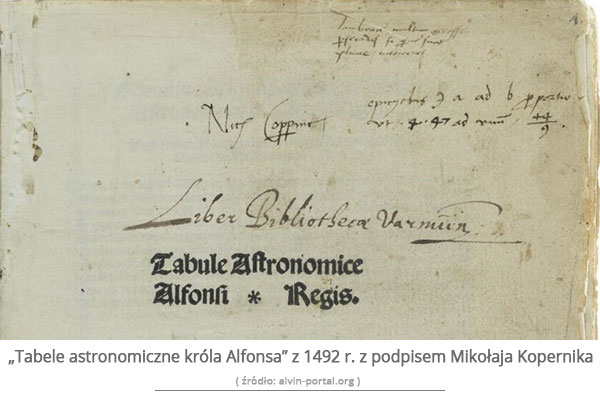 1.
epicyclus a ad b proportio
Nic Coppnic
ut 4.47 ad unum 44/9.
Liber Bibliothecæ Varmien.
Tabule Astronomice
Alfonsi * Regis.
„Tabele astronomiczne króla Alfonsa” z 1492 r. z podpisem Mikołaja Kopernika
( źródło: alvin-portal.org )